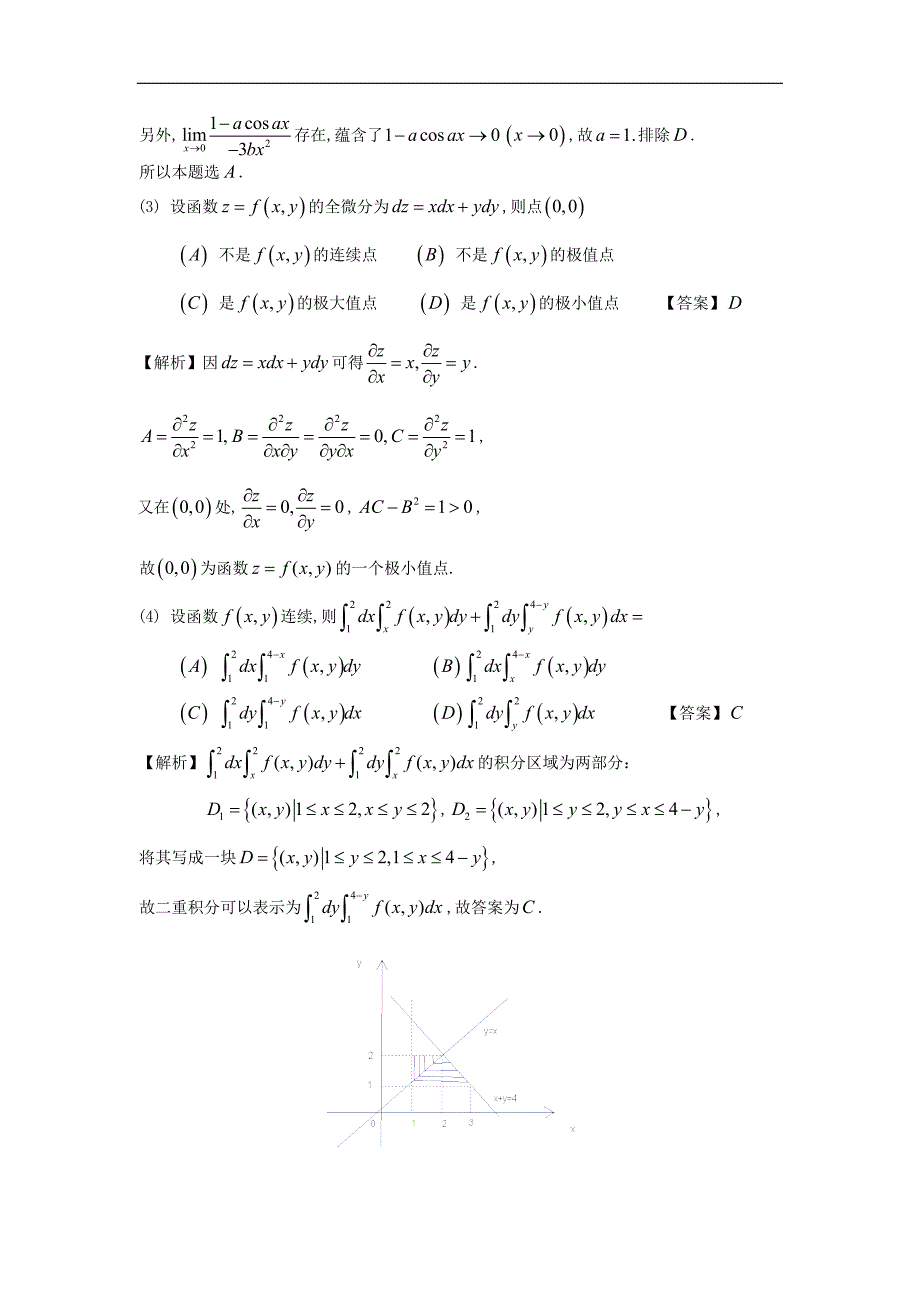 另外, $\lim_{x\to 0}\frac{1-a\cos ax}{-3bx^2}$ 存在,蕴含了 $1-a\cos ax\to 0\ (x\to 0)$,故 $a=1$.排除 $D$.
所以本题选 $A$.
(3) 设函数 $z=f(x,y)$ 的全微分为 $dz=xdx+ydy$,则点 $(0,0)$
(A) 不是 $f(x,y)$ 的连续点 (B) 不是 $f(x,y)$ 的极值点
(C) 是 $f(x,y)$ 的极大值点 (D) 是 $f(x,y)$ 的极小值点 【答案】D
【解析】因 $dz=xdx+ydy$ 可得 $\frac{\partial z}{\partial x}=x,\frac{\partial z}{\partial y}=y$.
$A=\frac{\partial^2 z}{\partial x^2}=1,B=\frac{\partial^2 z}{\partial x\partial y}=\frac{\partial^2 z}{\partial y\partial x}=0,C=\frac{\partial^2 z}{\partial y^2}=1$,
又在 $(0,0)$ 处, $\frac{\partial z}{\partial x}=0,\frac{\partial z}{\partial y}=0$, $AC-B^2=1>0$,
故 $(0,0)$ 为函数 $z=f(x,y)$ 的一个极小值点.
(4) 设函数 $f(x,y)$ 连续,则 $\int_1^2dx\int_x^2f(x,y)dy+\int_1^2dy\int_y^{4-y}f(x,y)dx=$
(A) $\int_1^2dx\int_1^{4-x}f(x,y)dy$ (B) $\int_1^2dx\int_x^{4-x}f(x,y)dy$
(C) $\int_1^2dy\int_1^{4-y}f(x,y)dx$ (D) $\int_1^2dy\int_y^2f(x,y)dx$ 【答案】C
【解析】 $\int_1^2dx\int_x^2f(x,y)dy+\int_1^2dy\int_x^2f(x,y)dx$ 的积分区域为两部分:
$D_1=\{(x,y)|1\le x\le 2,x\le y\le 2\}$, $D_2=\{(x,y)|1\le y\le 2,y\le x\le 4-y\}$,
将其写成一块 $D=\{(x,y)|1\le y\le 2,1\le x\le 4-y\}$,
故二重积分可以表示为 $\int_1^2dy\int_1^{4-y}f(x,y)dx$,故答案为 $C$.
y
y=x
2
1
x+y=4
0 1 2 3
x